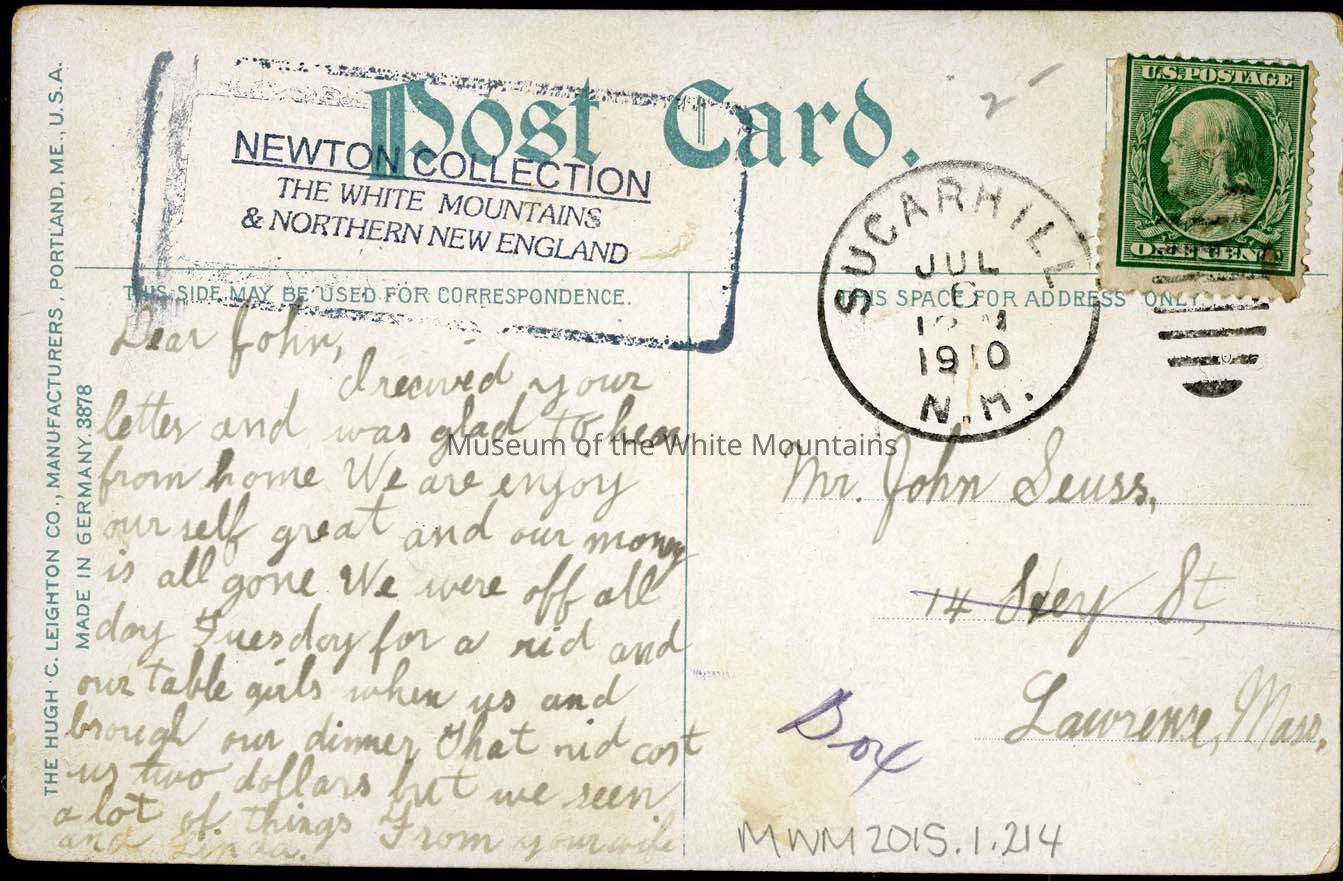 Post Card.
NEWTON COLLECTION
THE WHITE MOUNTAINS
& NORTHERN NEW ENGLAND
U.S. POSTAGE
ONE CENT
2 -
SUGAR HILL
JUL
6
12 M
1910
N.H.
THIS SIDE MAY BE USED FOR CORRESPONDENCE.
THIS SPACE FOR ADDRESS ONLY.
THE HUGH C. LEIGHTON CO., MANUFACTURERS, PORTLAND, ME., U.S.A.
MADE IN GERMANY. 3878
Dear John,
I recived your
letter and was glad to hear
from home We are enjoy
our self great and our money
is all gone We were off all
day Tuesday for a rid and
our table girls when us and
brough our dinner That rid cost
us two dollars but we seen
a lot of things From your wife
and Linda.
Museum of the White Mountains
Mr. John Seuss,
14 St,
Lawrence, Mass.
Box
MWM 2015.1.214